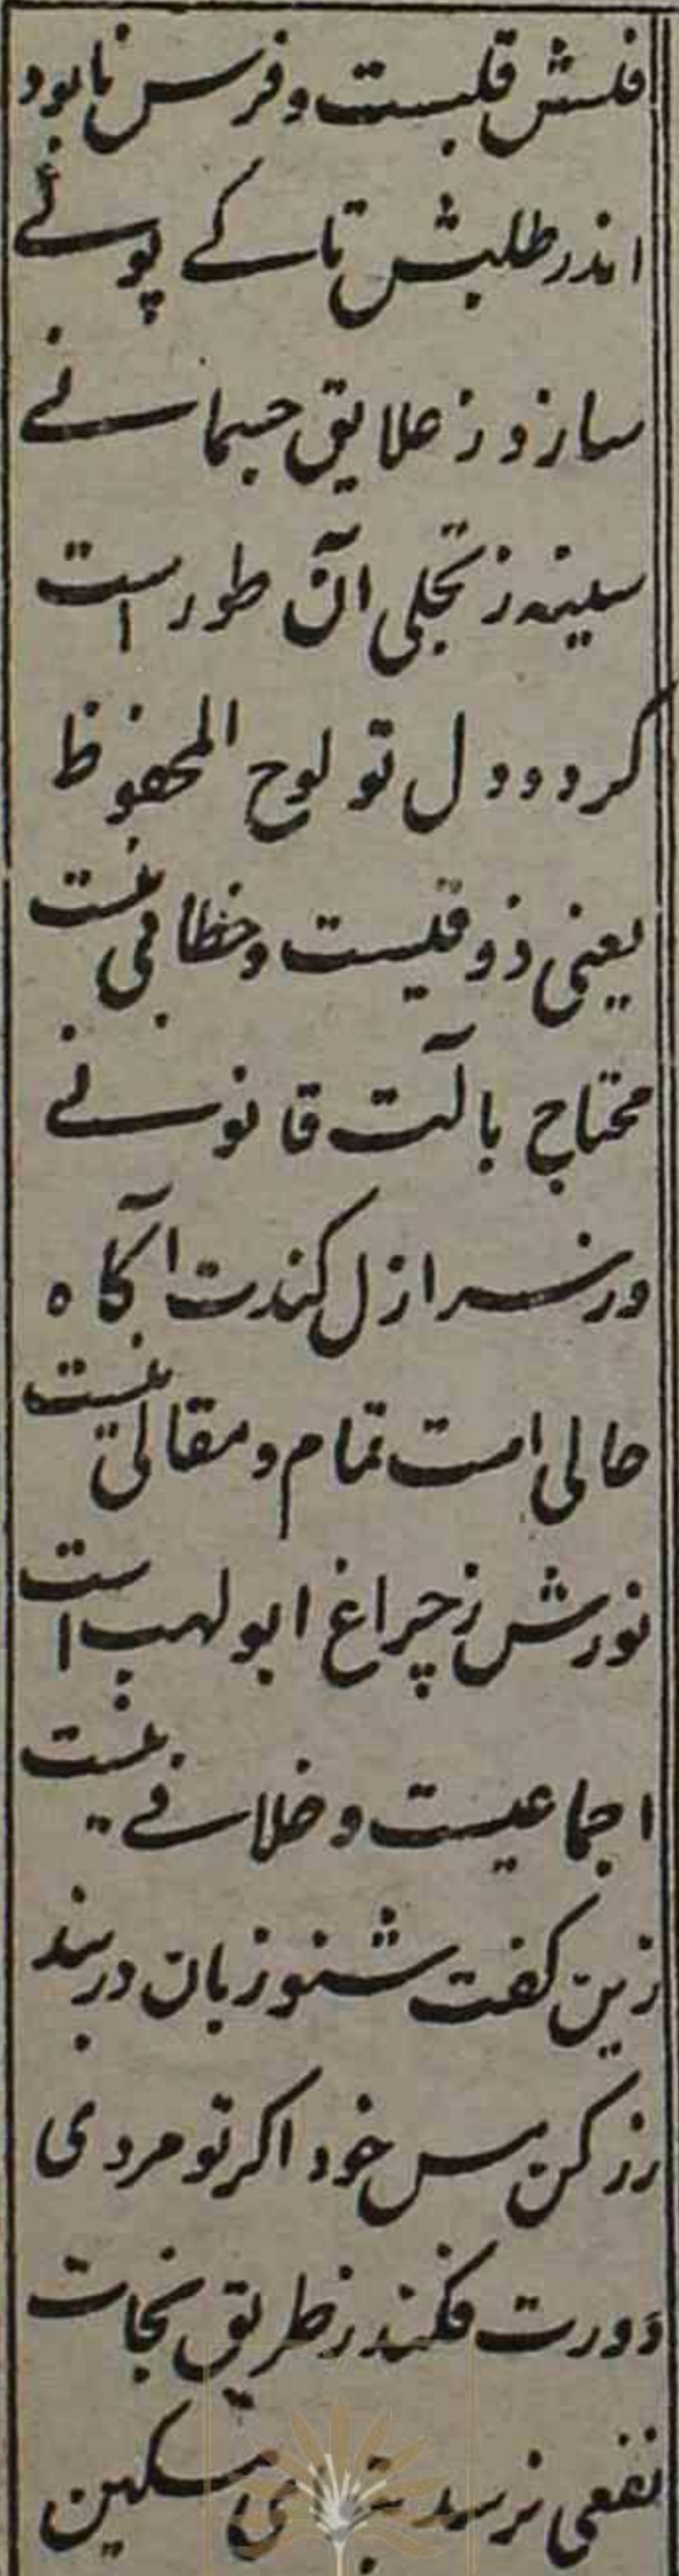 فلسش قلبست و فرس نابود
اندر طلبش تا کے پوئے
سازد ز علایق جسمانے
سینه ز تجلی آن طور است
گردد دل تو لوح المحفوظ
یعنی ذوقیست و خطافی نیست
محتاج بآلت قانونے
ور سر ازل کندت آگاه
حالی است تمام و مقالی نیست
نورش ز چراغ ابولهب است
اجماعیست و خلافے نیست
زین گفت شنو زبان دربند
زر کن مس خود اگر تو مردی
دورت فکند ز طریق نجات
نفعی نرسد مسکین